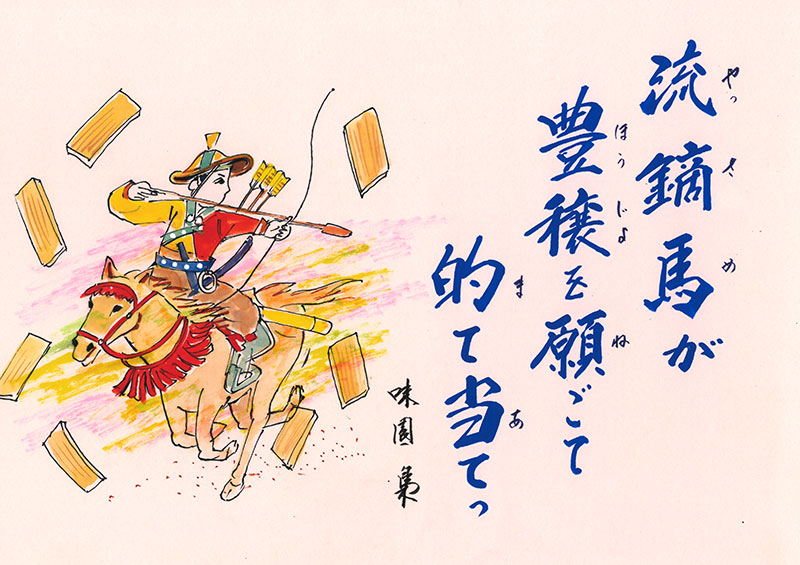 やっさめ
流鏑馬が
ほうじよね
豊穣を願ごて
まあ
的て当てっ
味園 梟